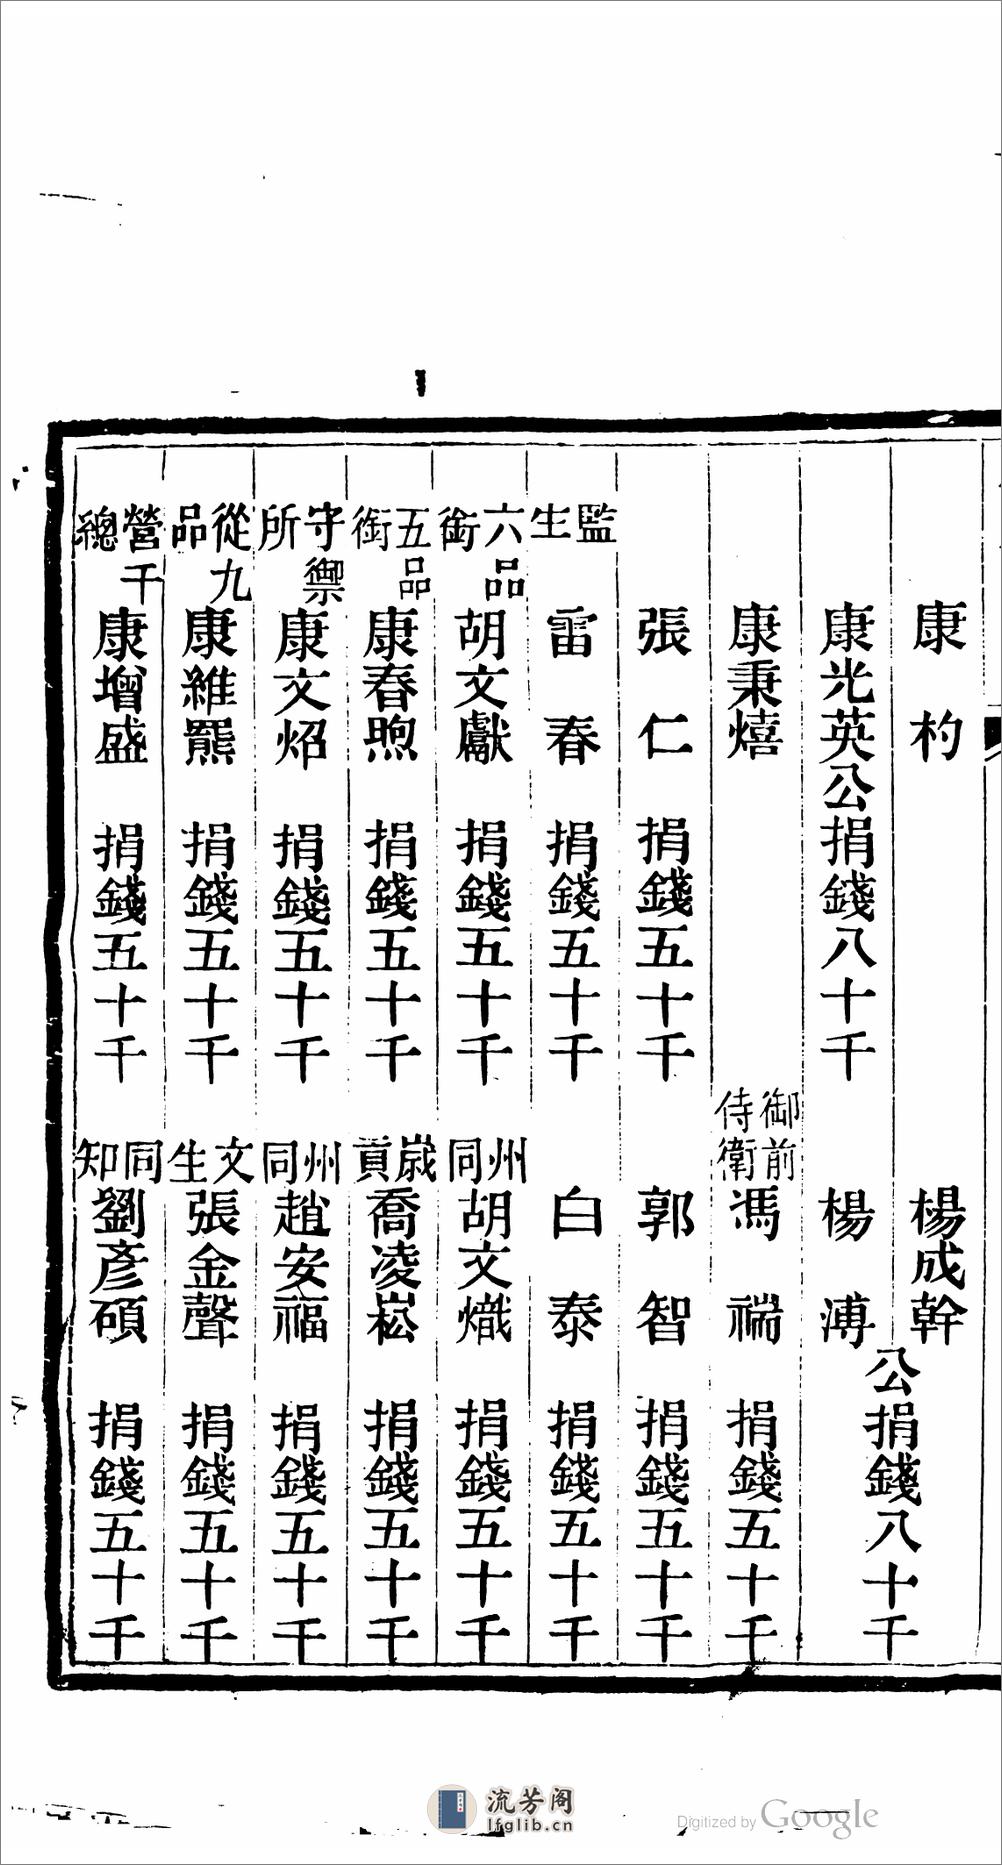 康　杓　楊成幹
康光英公捐錢八十千　楊　溥
公捐錢八十千
康秉熺　御前侍衛馮　瑞　捐錢五十千
張　仁　捐錢五十千　郭　智　捐錢五十千
監生雷　春　捐錢五十千　白　泰　捐錢五十千
六品銜胡文獻　捐錢五十千　州同胡文熾　捐錢五十千
五品銜康春煦　捐錢五十千　歲貢喬凌崧　捐錢五十千
守禦所康文炤　捐錢五十千　州同趙安福　捐錢五十千
從九品康維羆　捐錢五十千　文生張金聲　捐錢五十千
營千總康增盛　捐錢五十千　同知劉彥碩　捐錢五十千
流芳阁
lfglib.cn
Digitized by Google